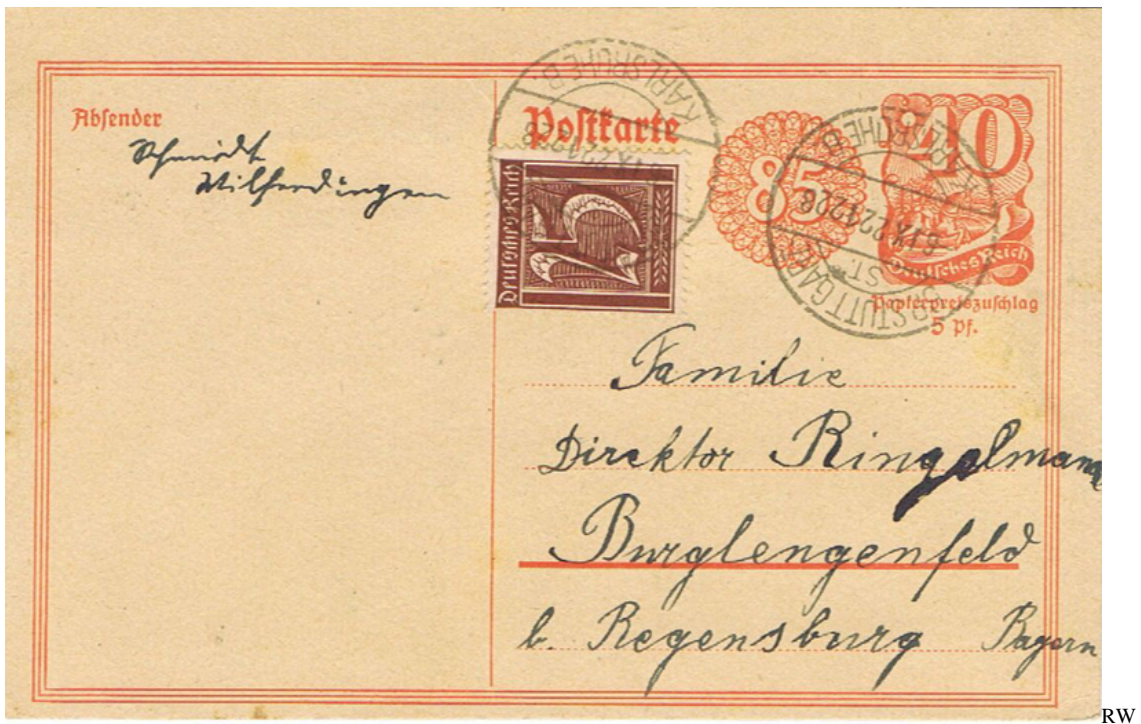 Absender
Schmidt
Wilferdingen
Postkarte
Deutsches Reich
75
85
40
Deutsches Reich
Papierpreiszuschlag
5 Pf.
KARLSRUHE B.
KARLSRUHE B.
6.IX.22.1228
STUTTGART
Familie
Direktor Ringelmann
Burglengenfeld
b. Regensburg Bayern
RW